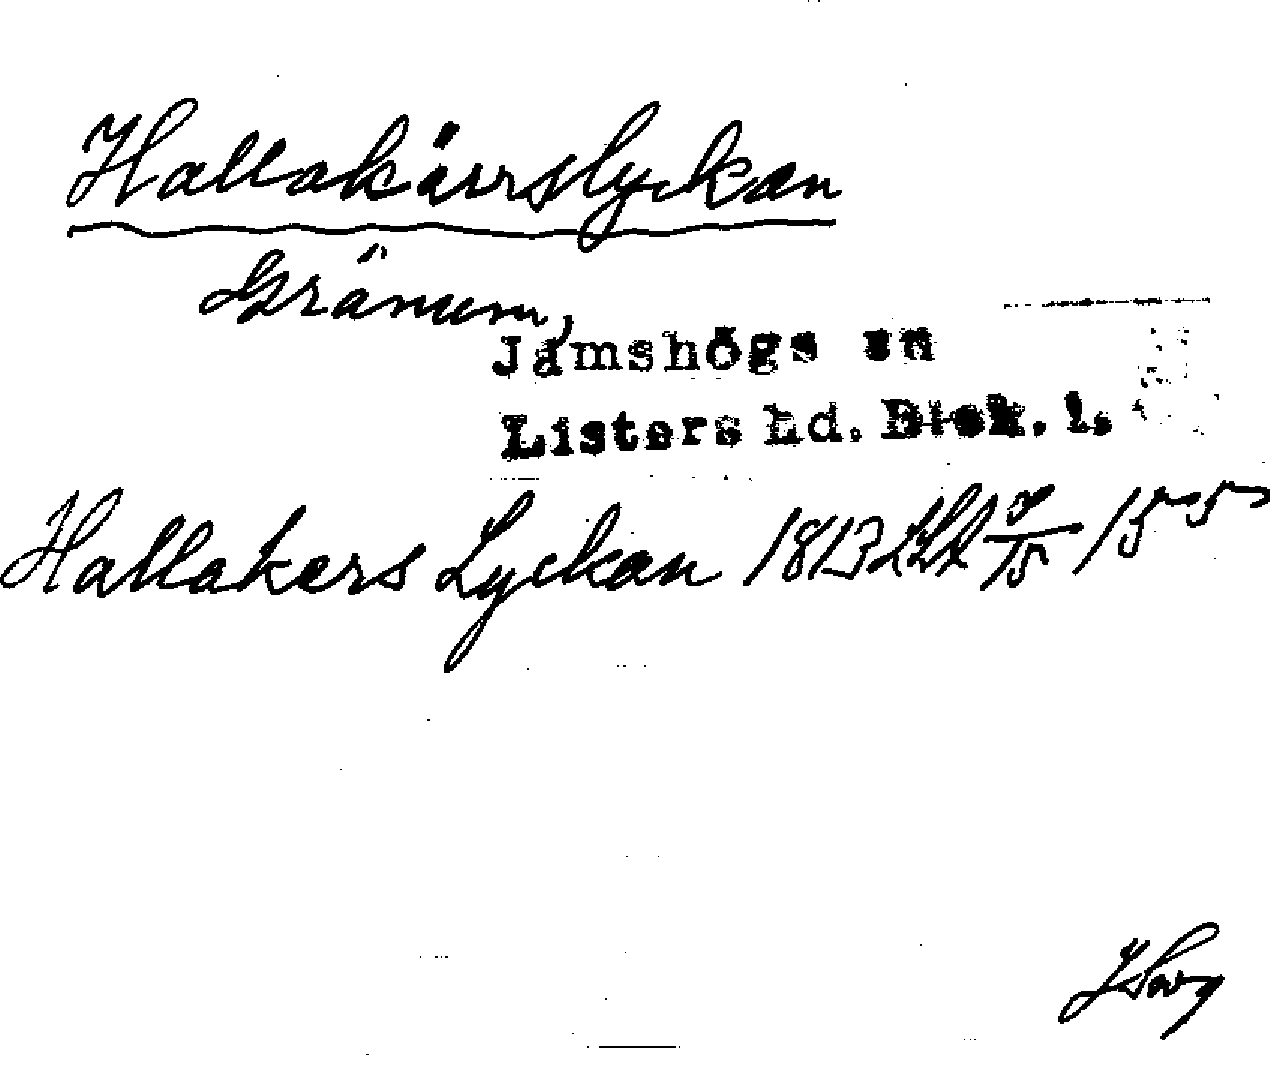 Hallakärrslyckan
Gränum,
Jämshögs sn
Listers hd. Blek. l.
Hallakers Lyckan 1813 LSA 8/15 155